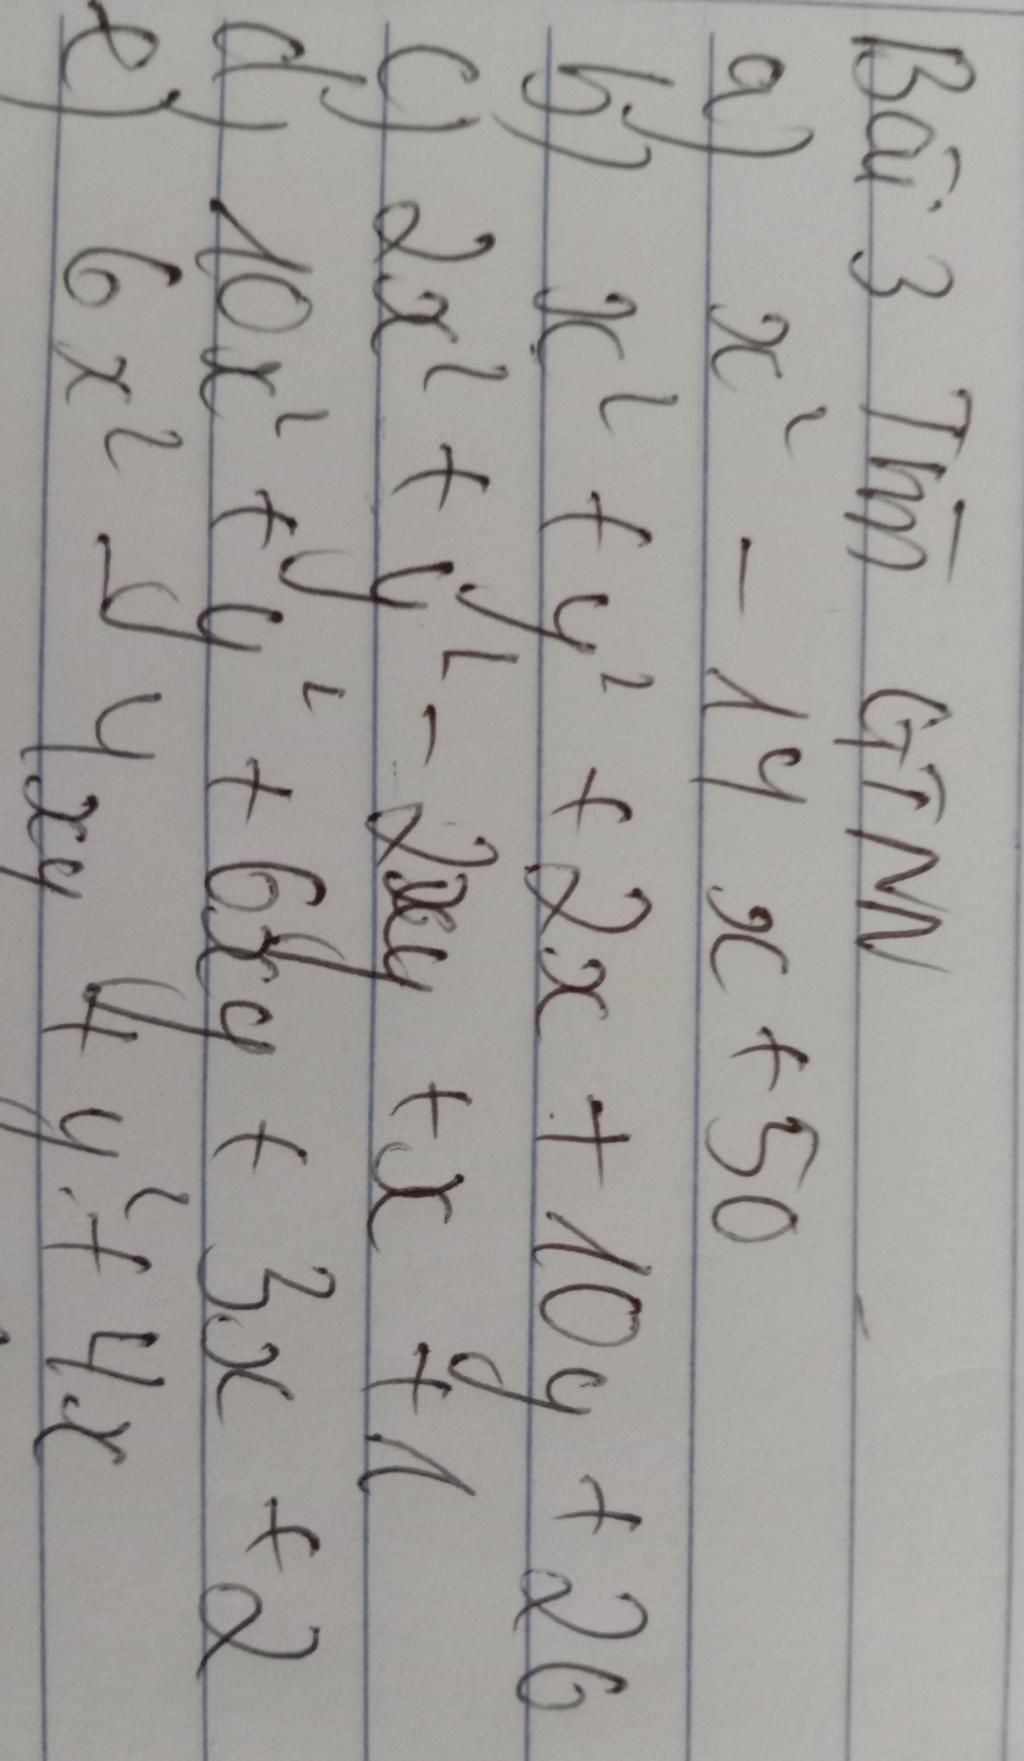 Bài 3 Tìm GTNN
a) x² - 14x + 50
b) x² + y² + 2x + 10y + 26
c) 2x² + y² - 2xy + x + 1
d) 10x² + y² + 6xy + 3x + 2
e) 6x² - 4xy + y² + 4x